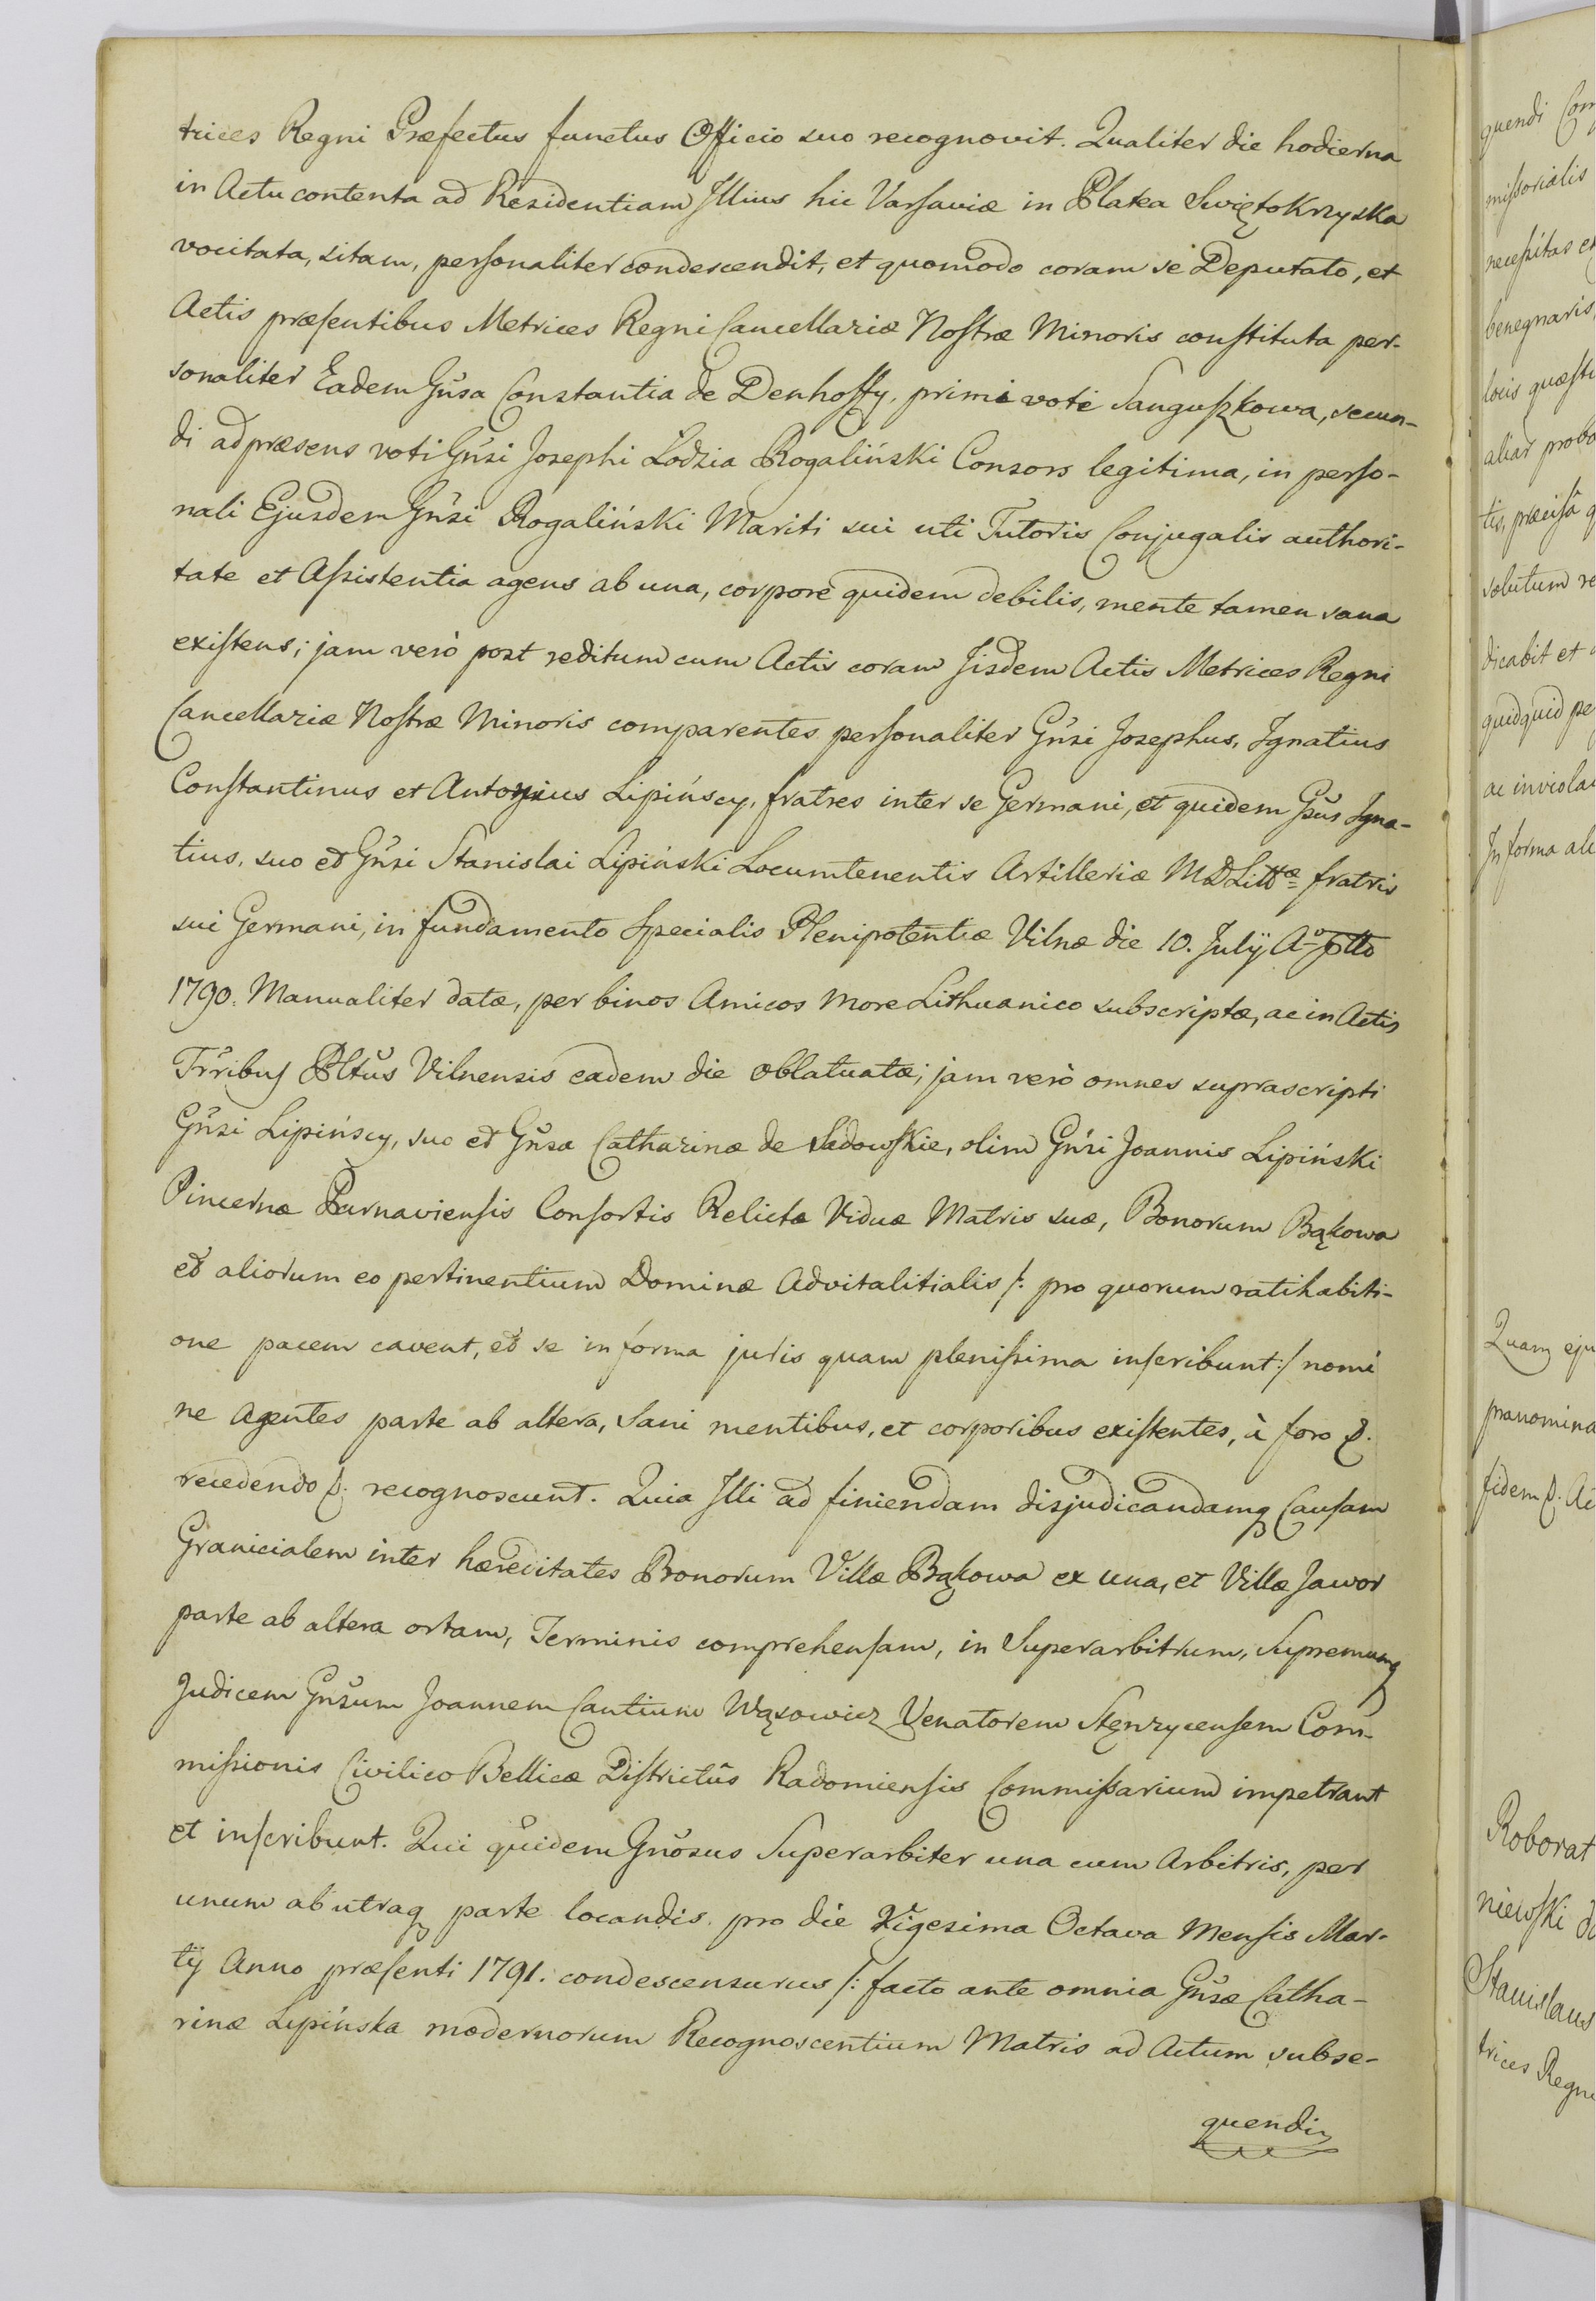 trices Regni Præfectus functus Officio suo recognovit. Qualiter die hodierna
in Actu contenta ad Residentiam Illius hic Varsaviæ in Platea Swiętokrzyska
vocitata, sitam, personaliter condescendit, et quomodo coram se Deputato, et
Actis præsentibus Metrices Regni Cancellariæ Nostræ Minoris constituta per-
sonaliter Eadem Gńsa Constantia de Denhoffy, primi voti Sanguszkowa, secun-
di ad præsens voti Gńsi Josephi Łodzia Rogaliński Consors legitima, in perso-
nali Ejusdem Gńsi Rogaliński Mariti sui uti Tutoris Conjugalis authori-
tate et Assistentia agens ab una, corpore quidem debilis, mente tamen sana
existens; jam verò post reditum cum Actis coram Iisdem Actis Metrices Regni
Cancellariæ Nostræ Minoris comparentes personaliter Gńsi Josephus, Ignatius
Constantinus et Antonius Lipińscy, fratres inter se Germani, et quidem Gsus Igna-
tius, suo et Gńsi Stanislai Lipiński Locumtenentis Artilleriæ M D Littæ fratris
sui Germani, in fundamento Specialis Plenipotentiæ Vilnæ die 10. Julÿ Aº
1790. Manualiter datæ, per binos Amicos more Lithuanico subscriptæ, ac in Actis
Trribus Pltus Vilnensis eadem die oblatuatæ; jam verò omnes suprascripti
Gńsi Lipińscy, suo et Gńsa Catharinæ de Sadowskie, olim Gńsi Joannis Lipiński
Pincernæ Parnaviensis Consortis Relictæ Viduæ Matris suæ, Bonorum Bąkowa
et aliorum eo pertinentium Dominæ Advitalitialis /: pro quorum ratihabiti-
one pacem cavent, et se in forma juris quam plenissima inscribunt :/ nomi
ne Agentes parte ab altera, Sani mentibus, et corporibus existentes, à foro p.
recedendo p. recognoscunt. Quia Illi ad finiendam disjudicandamq Causam
Granicialem inter hæreditates Bonorum Villæ Bąkowa ex una, et Villæ Jawor
parte ab altera ortam, Terminis comprehensam, in Superarbitrum, Supremumq
Judicem Gnsum Joannem Cantium Wąsowicz Venatorem Stęnzycensem Com-
missionis Civilico Bellicæ Districtûs Radomiensis Commissarium impetrant
et inscribunt. Qui quidem Gnosus Superarbiter una cum Arbitris, per
unum ab utraq parte locandis, pro die Vigesima Octava Mensis Mar-
tÿ Anno præsenti 1791. condescensurus /: facto ante omnia Gńsæ Catha-
rinæ Lipińska modernorum Recognoscentium Matris ad Actum subse-
quendi
quendi Com
missorialis
necessitas et
benegnaris,
locis quæsti
aliar probo
tis, præcisâ q
solutum re
dicabit et
quidquid pe
ac inviola
In forma ali
Quam eju
prænomina
fidem p. Ac
Roborat
niewski
Stanislaus
trices Regni